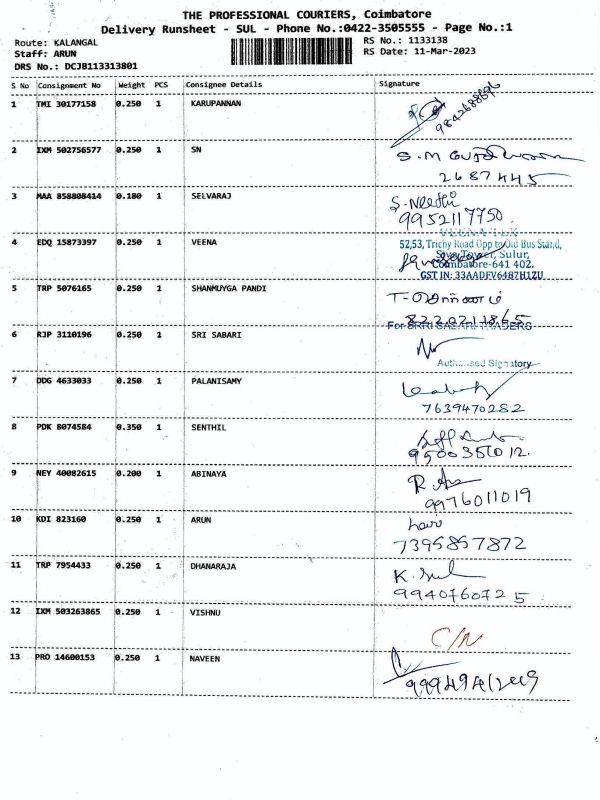 THE PROFESSIONAL COURIERS, Coimbatore
Delivery Runsheet - SUL - Phone No.:0422-3505555 - Page No.:1
Route: KALANGAL
RS No.: 1133138
Staff: ARUN
RS Date: 11-Mar-2023
DRS No.: DCJB113313801
S No Consignment No Weight PCS Consignee Details Signature
1 TMI 30177158 0.250 1 KARUPANNAN
9842688696
2 IXM 502756577 0.250 1 SN S.M
2687445
3 MAA 858808414 0.180 1 SELVARAJ S. Neethi
9952117750
4 EDQ 15873397 0.250 1 VEENA VEENA TEX
52,53, Trichy Road Opp to Old Bus Stand,
Tower, Sulur,
Coimbatore-641 402.
GST IN: 33AADFV6487H1ZU
5 TRP 5076165 0.250 1 SHANMUYGA PANDI T-
8220211865
6 RJP 3110196 0.250 1 SRI SABARI For SRRI SABARI TRADERS
Authorised Signatory
7 DDG 4633033 0.250 1 PALANISAMY
7639470282
8 PDK 8074584 0.350 1 SENTHIL
9500351012.
9 NEY 40082615 0.200 1 ABINAYA
9976011019
10 KDI 823160 0.250 1 ARUN
7395857872
11 TRP 7954433 0.250 1 DHANARAJA K.
9940760725
12 IXM 503263865 0.250 1 VISHNU
C/N
13 PRO 14600153 0.250 1 NAVEEN